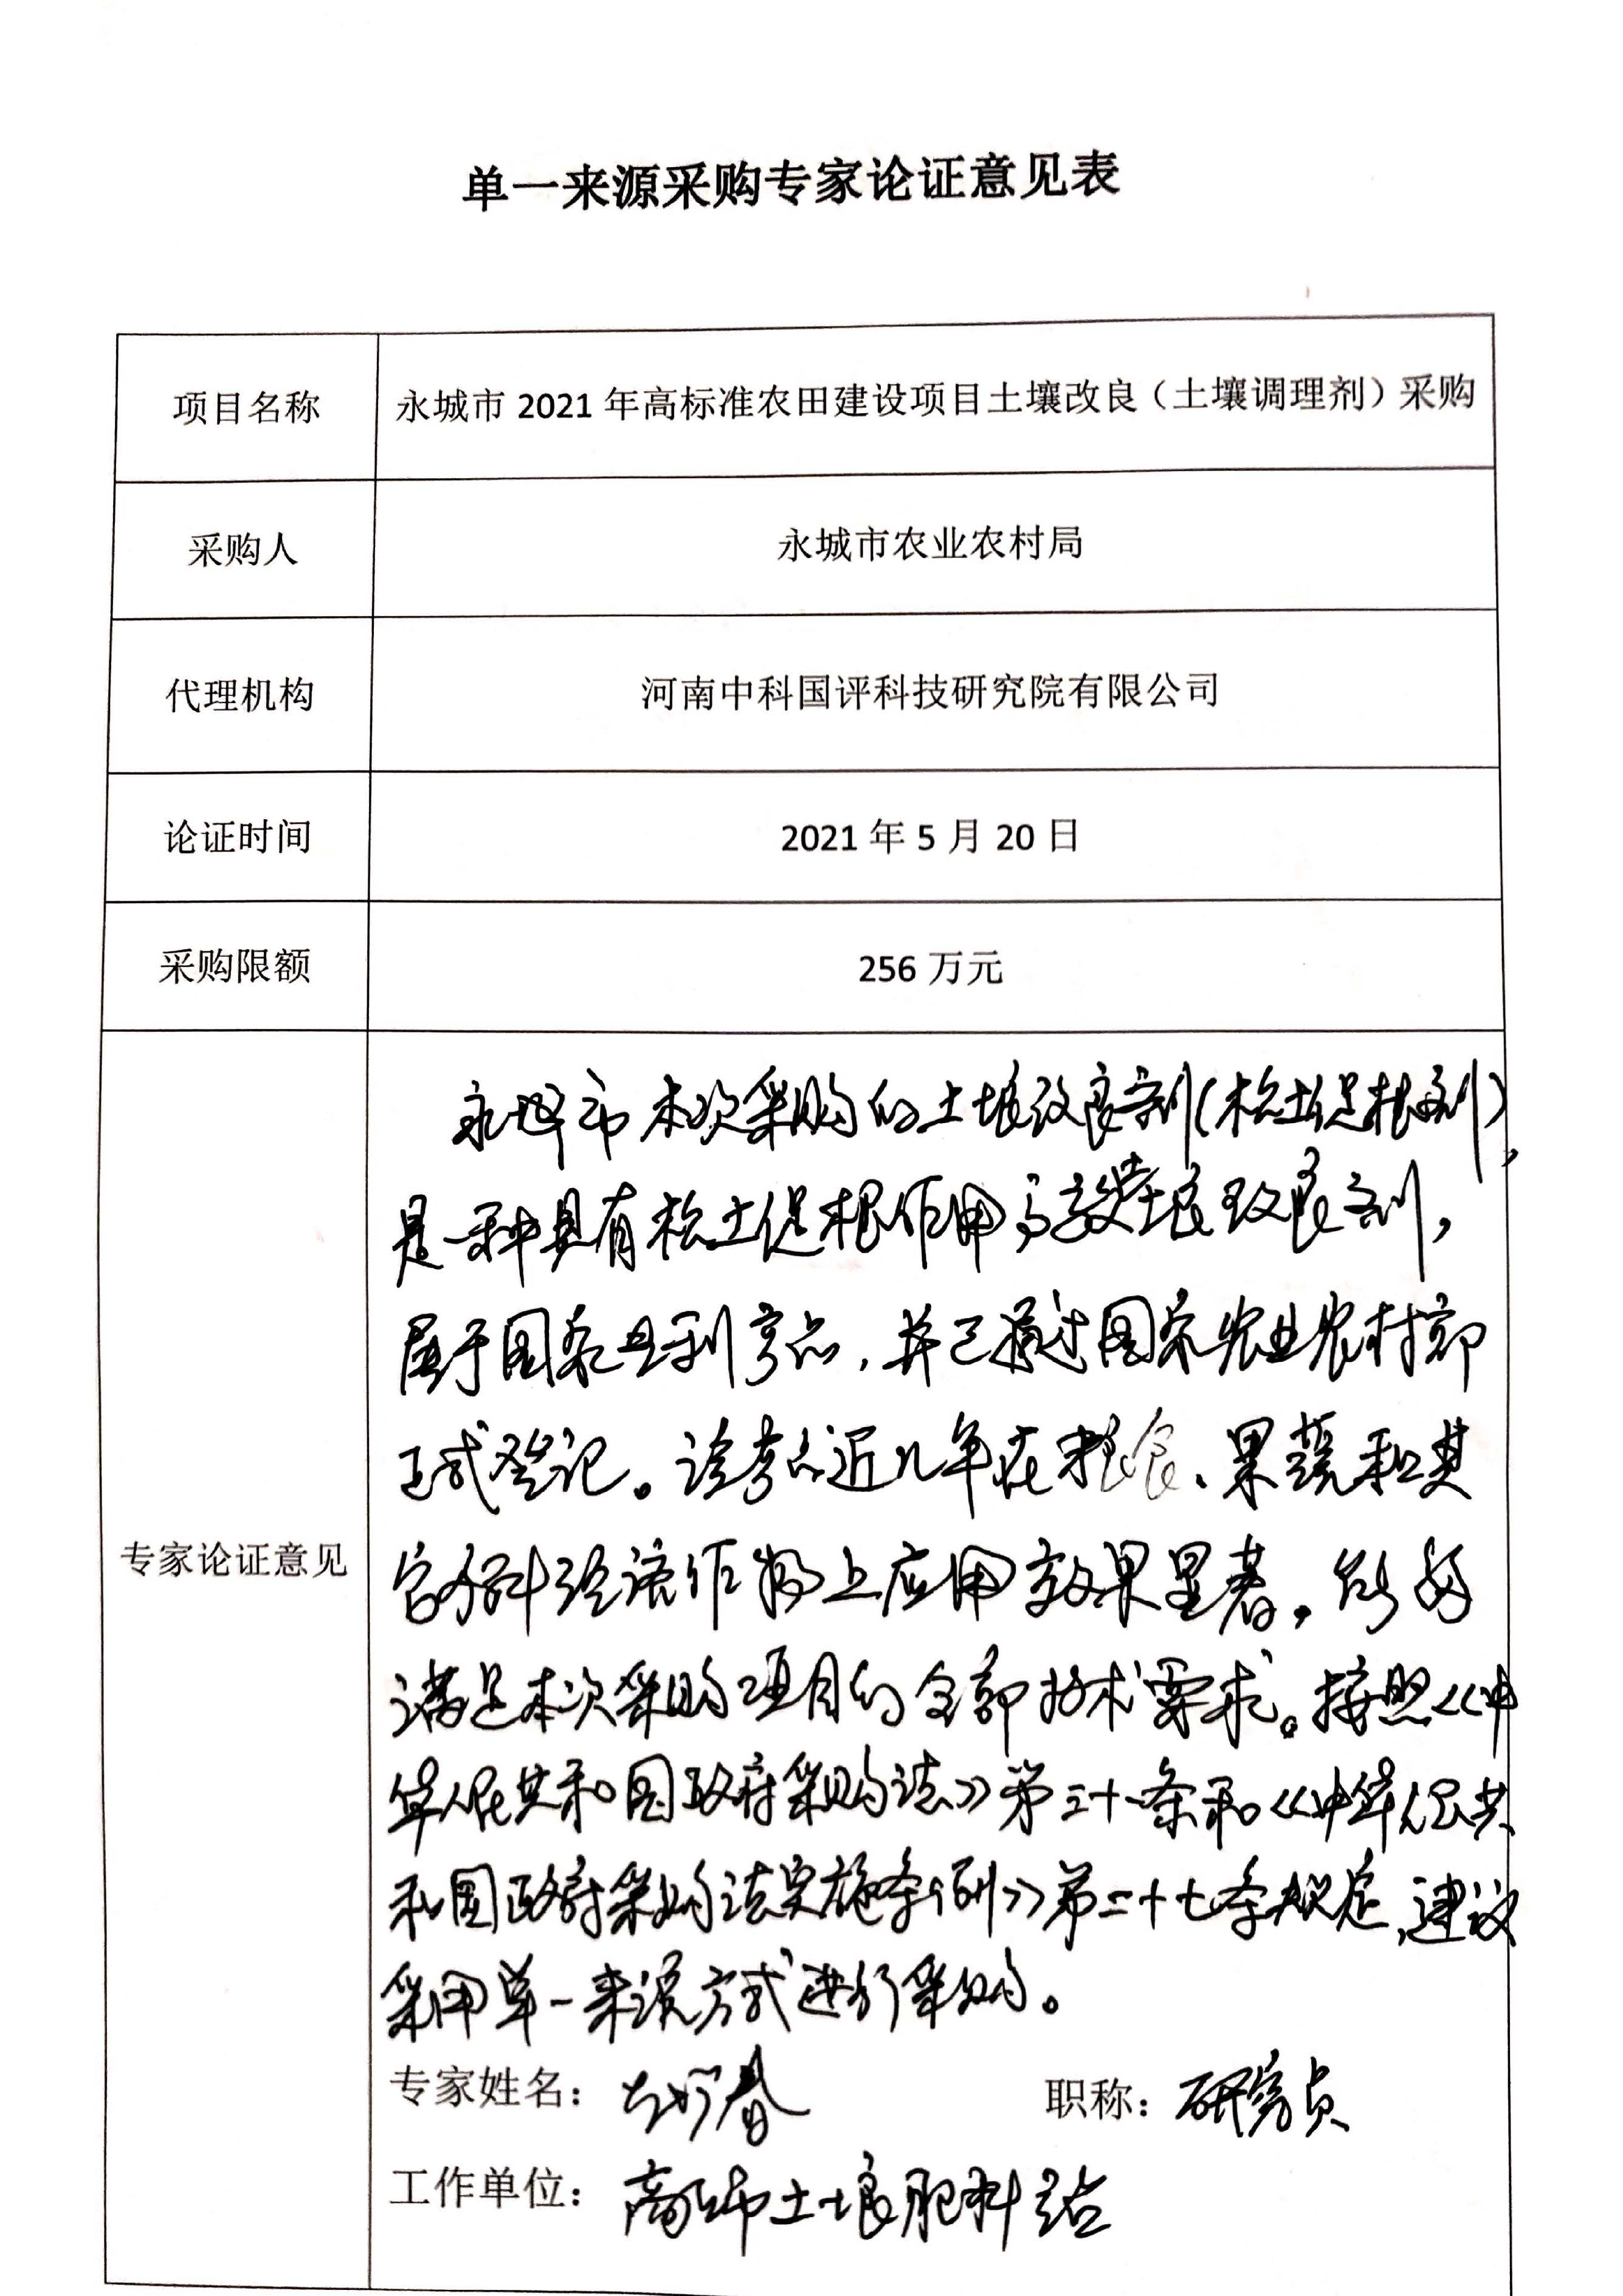 单一来源采购专家论证意见表
项目名称 永城市 2021 年高标准农田建设项目土壤改良（土壤调理剂）采购
采购人 永城市农业农村局
代理机构 河南中科国评科技研究院有限公司
论证时间 2021 年 5 月 20 日
采购限额 256 万元
专家论证意见
永城市本次采购的土壤改良剂(松土促根剂),
是一种具有松土促根作用高效土壤改良剂,
属于国家专利产品,并已通过国家农业农村部
正式登记。该产品近几年在粮食、果蔬和其
它各种经济作物上应用效果显著。能够
满足本次采购项目的全部技术要求。按照《中
华人民共和国政府采购法》第三十一条和《中华人民共
和国政府采购法实施条例》第二十七条规定,建议
采用单一来源方式进行采购。
专家姓名： 职称：研究员
工作单位：商丘市土壤肥料站